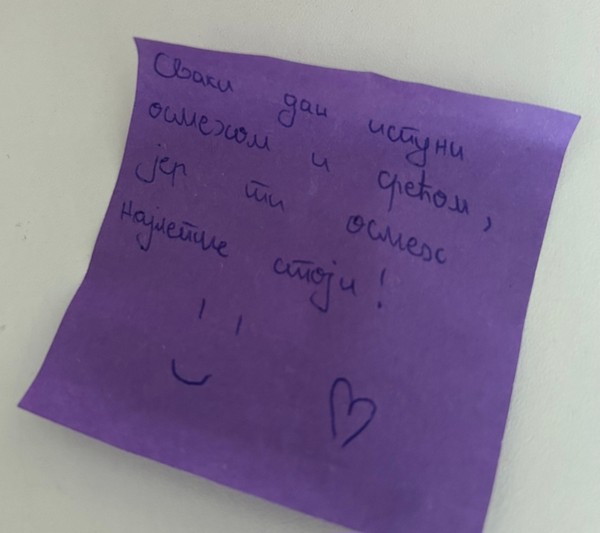 Сваки дан испуни
осмехом и срећом,
јер ти осмех
најлепше стоји!